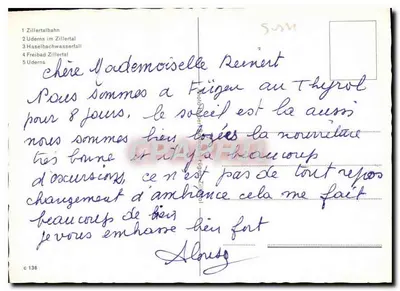 1 Zillertalbahn
2 Uderns im Zillertal
3 Haselbachwasserfall
4 Freibad Zillertal
5 Uderns
chère Mademoiselle Reinert
Nous sommes a Fügen au Thyrol
pour 8 jours, le soleil est la aussi
nous sommes bien logées la nourriture
très bonne et il y a beaucoup
d'excursions, ce n'est pas de tout repos
changement d'ambiance cela me fait
beaucoup de bien
je vous embrasse bien fort
c 136